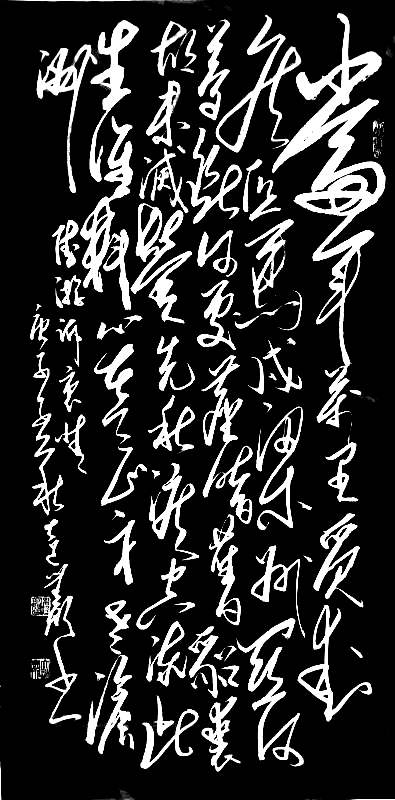 當年萬里覓封
侯匹馬戍梁州關河
夢斷何處塵暗舊貂裘
胡未滅鬢先秋淚空流此
生誰料心在天山身老滄
洲
陸游訴衷情
庚子
秋
書